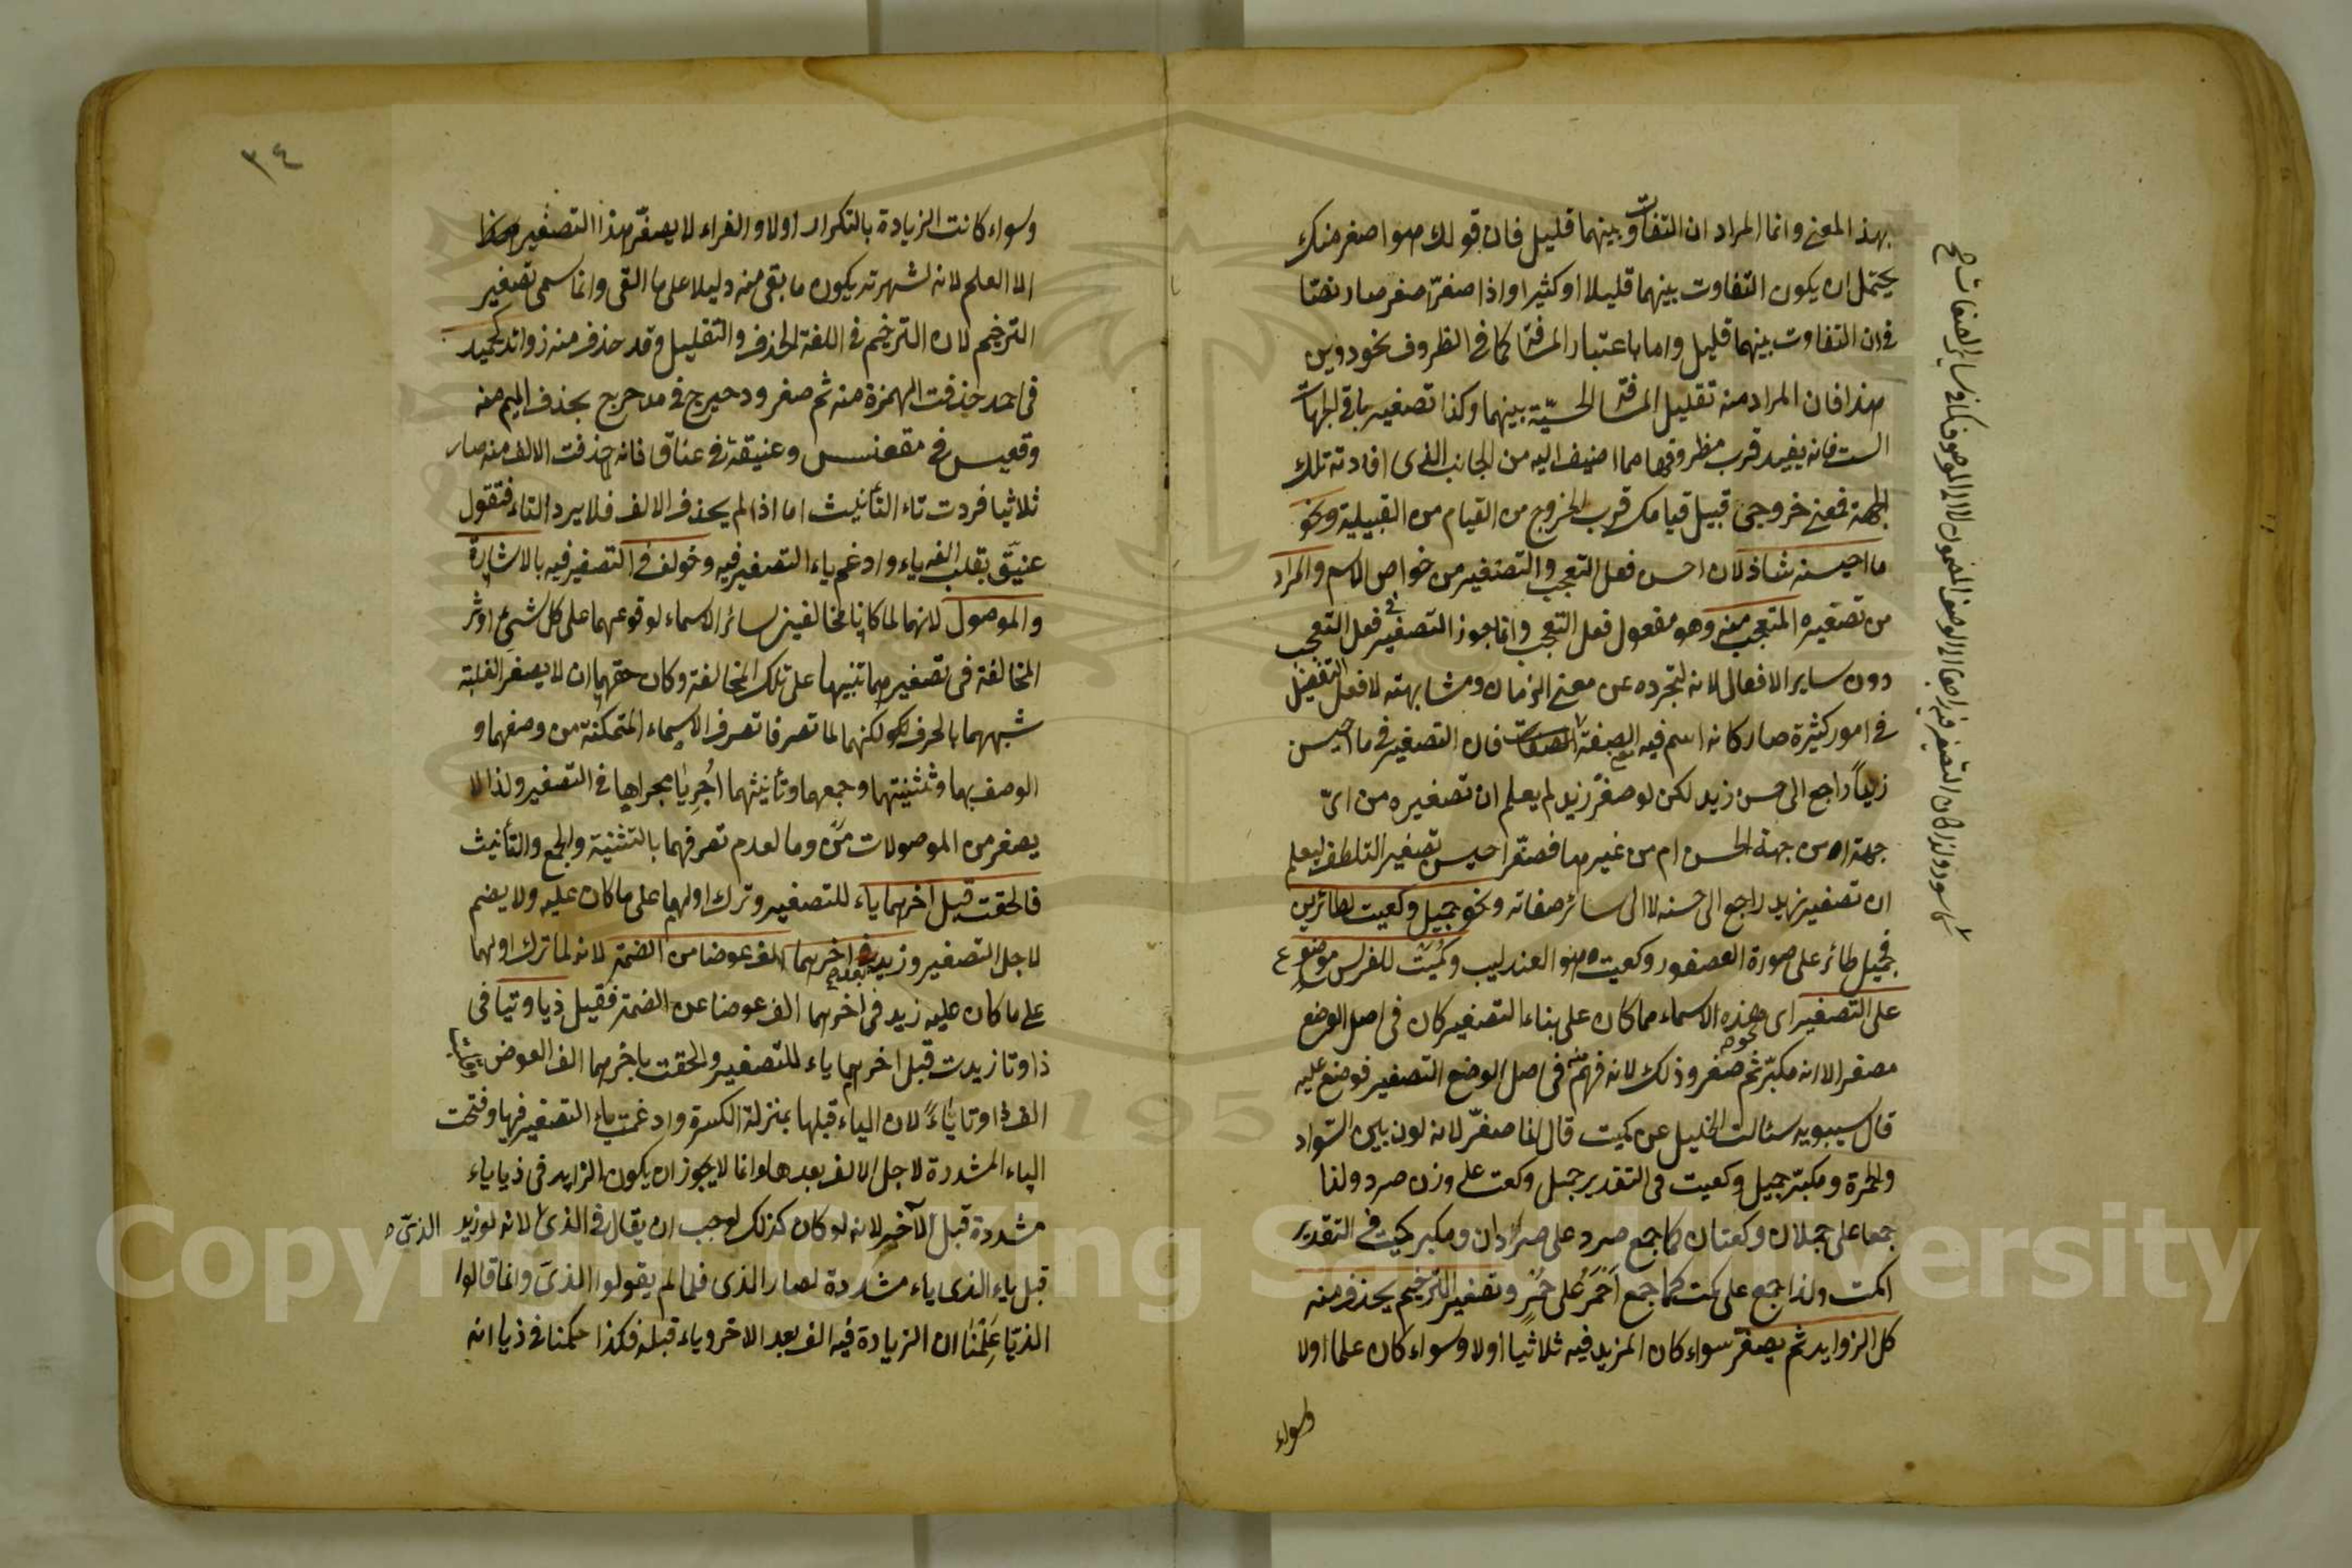 بهذا المعنى وانما المراد ان التفاوت بينهما قليل فان قولك هو اصغر منك
يحتمل ان يكون التفاوت بينهما قليلا او كثيرا واذا صغّر اصغر صار نصّا
في ان التفاوت بينهما قليل واما باعتبار المسافة كما في الظروف نحو دوين
هذا فان المراد منه تقليل المسافة الحسيّة بينهما وكذا تصغير باقي الجهات
الست فانه يفيد قرب مظروفها مما اضيف اليه من الجانب الذي افادته تلك
الجهة فمعنى خروجي قبيل قيامك قرب الخروج من القيام من القبيلية ونحو
ما احيسنه شاذ لان احسن فعل التعجب والتصغير من خواص الاسم والمراد
من تصغيره المتعجب منه وهو مفعول فعل التعجب وانما جوز التصغير في فعل التعجب
دون ساير الافعال لانه لتجرده عن معنى الزمان ومشابهته لافعل التفضيل
في امور كثيرة صار كانه اسم فيه الصفة فان التصغير في ما احيسن
زيداً راجع الى حسن زيد لكن لو صغّر زيد لم يعلم ان تصغيره من ايّ
جهة امن جهة الحسن ام من غيرها فصغّر احيسن تصغير التلطف ليعلم
ان تصغير زيد راجع الى حسنه لا الى سائر صفاته ونحو جميل وكعيت لطائرين
فجميل طائر على صورة العصفور وكعيت هو العندليب وكُمَيْت للفرس موضوع
على التصغير اى وهذه الاسماء مما كان على بناء التصغير كان في اصل الوضع
مصغرا لا انه مكبّر ثم صغر وذلك لانه فهم منه في اصل الوضع التصغير فوضع عليه
قال سيبويه سئالت الخليل عن كميت قال انما صغّر لانه لون بين السّواد
والحمرة ومكبّر جميل وكعيت في التقدير جمل وكعت على وزن صرد ولذا
جمعا على جملان وكعتان كما جمع صرد على صردان ومكبر كميت في التقدير
اكمت ولذا جمع على كمت كما جمع اَحْمَرَ على حُمْرٍ وتصغير الترخيم يحذف منه
كل الزوايد ثم يصغّر سواء كان المزيد فيه ثلاثيا اولا وسواء كان علما اولا
وسواء
٣٤
وسواء كانت الزيادة بالتكرار اولا والفراء لا يصغّر هذا التصغير
الا العلم لانه لشهرته يكون ما بقى منه دليلا على ما القى وانما سمى تصغير
الترخيم لان الترخيم في اللغة الحذف والتقليل وقد حذف منه زوائد كحميد
في احمد حذفت الهمزة منه ثم صغر ودحيرج في مدحرج بحذف الميم منه
وقعيس في مقعنسس وعنيقة في عناق فانه حذفت الالف منه صار
ثلاثيا فردت تاء التأنيث اما اذا لم يحذف الالف فلا يرد التاء فتقول
عنيّق بقلب الفه ياء وادغم ياء التصغير فيه وخولف في التصغير فيه بالاشارة
والموصول لانهما لما كانا مخالفين لسائر الاسماء لوقوعهما على كل شئ اوثر
المخالفة في تصغيرهما تنبيها على تلك المخالفة وكان حقهما ان لا يصغر الغلبة
شبههما بالحرف لكنهما لما تصرفا تصرف الاسماء المتمكنة من وصفهما و
الوصف بهما وتثنيتهما وجمعهما وتأنيثهما اُجْرِيَا مجراها في التصغير ولذا لا
يصغر من الموصولات مَن وما لعدم تصرفهما بالتثنية والجمع والتأنيث
فالحقت قبل اخرهما ياء للتصغير وترك اولهما على ما كان عليه ولا يضم
لاجل التصغير وزيد بعد اخرهما الف عوضا من الضمة لانه لما ترك اولهما
على ما كان عليه زيد في اخرهما الف عوضا عن الضمة فقيل ذيا وتيا في
ذا وتا زيدت قبل اخرهما ياء للتصغير والحقت باخرهما الف العوض
الف ذا وتا ياءً لان الياء قبلها بمنزلة الكسرة وادغمت ياء التصغير فيها وفتحت
الياء المشددة لاجل الالف بعدها وانما لا يجوز ان يكون الزايد في ذيا ياء
مشددة قبل الآخر لانه لو كان كذلك لوجب ان يقال في الذى لانه لو زيد الذيّ
قبل ياء الذى ياء مشددة لصار الذى فلما لم يقولوا الذيَ وانما قالوا
الذيّا عَلِمْنَا ان الزيادة فيه الف بعد الاخر وياء قبله فكذا حكمنا في ذيا انه